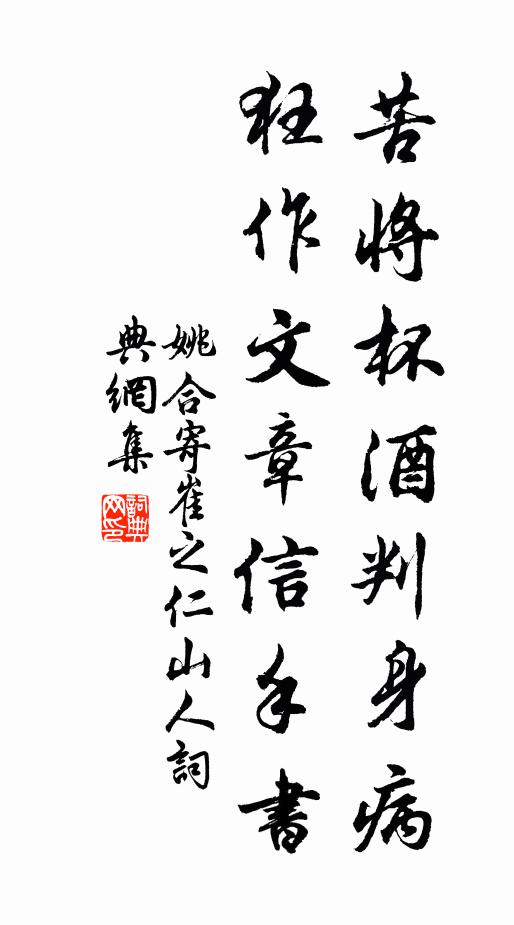 苦將杯酒判身病
狂作文章信手書
姚合寄崔之仁山人詞
典網集
詞典網印